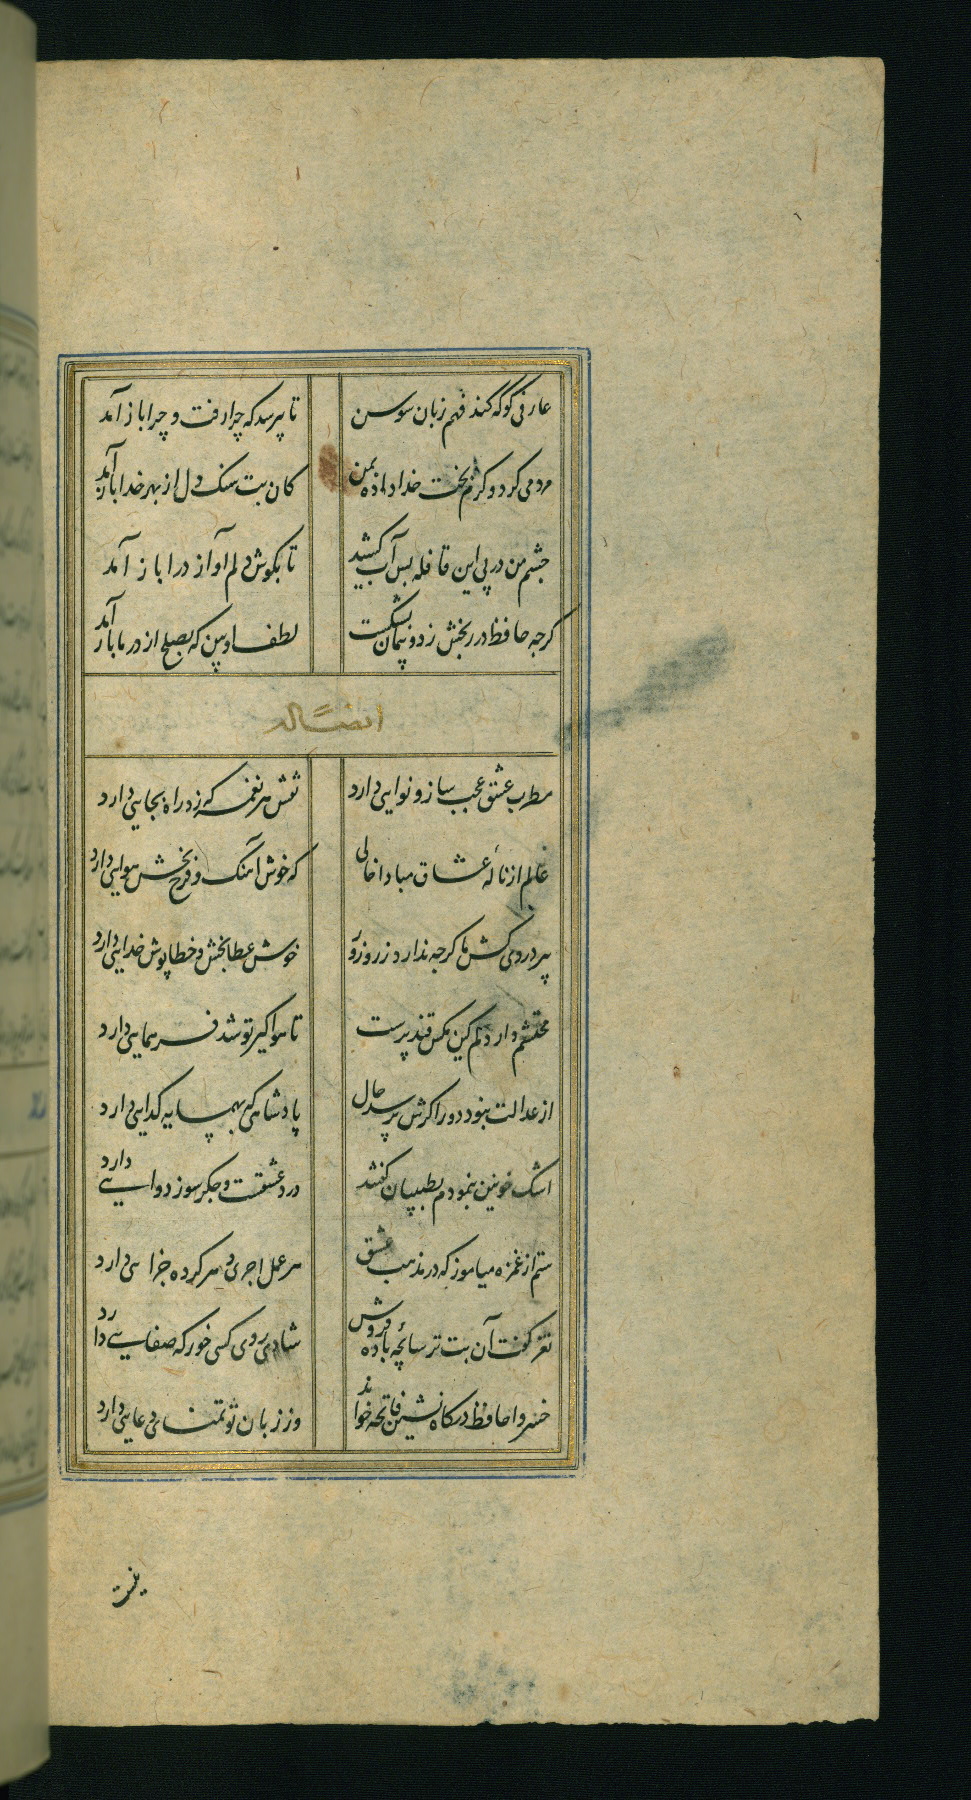 عارفی کو که کند فهم زبان سوسن تا بپرسد که چرا رفت و چرا باز آمد
مردمی کرد و کرم بخت خداداده بمن کان بت سنک دل از بهر خدا باز آمد
چشم من در پی این قافله بس آب کشید تا بکوش دلم آواز درا باز آمد
کرچه حافظ در رنجش زد و پیمان بشکست لطف او بین که بصلح از در ما باز آمد
ایضاً له
مطرب عشق عجب ساز و نوایی دارد نقش هر نغمه که زد راه بجایی دارد
عالم از نالهٔ عشاق مبادا خالی که خوش آهنک و فرح بخش هوایی دارد
پیر دردی کش ما کرچه ندارد زر و زور خوش عطابخش و خطاپوش خدایی دارد
محتشم دار دلم کین مکس قندپرست تا هواکیر تو شد فر همایی دارد
از عدالت نبود دور اکرش پرسد حال پادشاهی که بهمسایه کدایی دارد
اشک خونین بنمودم بطبیبان کفتند درد عشقست و جکرسوز دوایی دارد
ستم از غمزه میاموز که در مذهب عشق هر عمل اجری و هر کرده جزایی دارد
نغز کفت آن بت ترسابچهٔ باده فروش شادی روی کسی خور که صفایی دارد
خسروا حافظ درکاه نشین فاتحه خواند وز زبان تو تمنای دعایی دارد
نیست